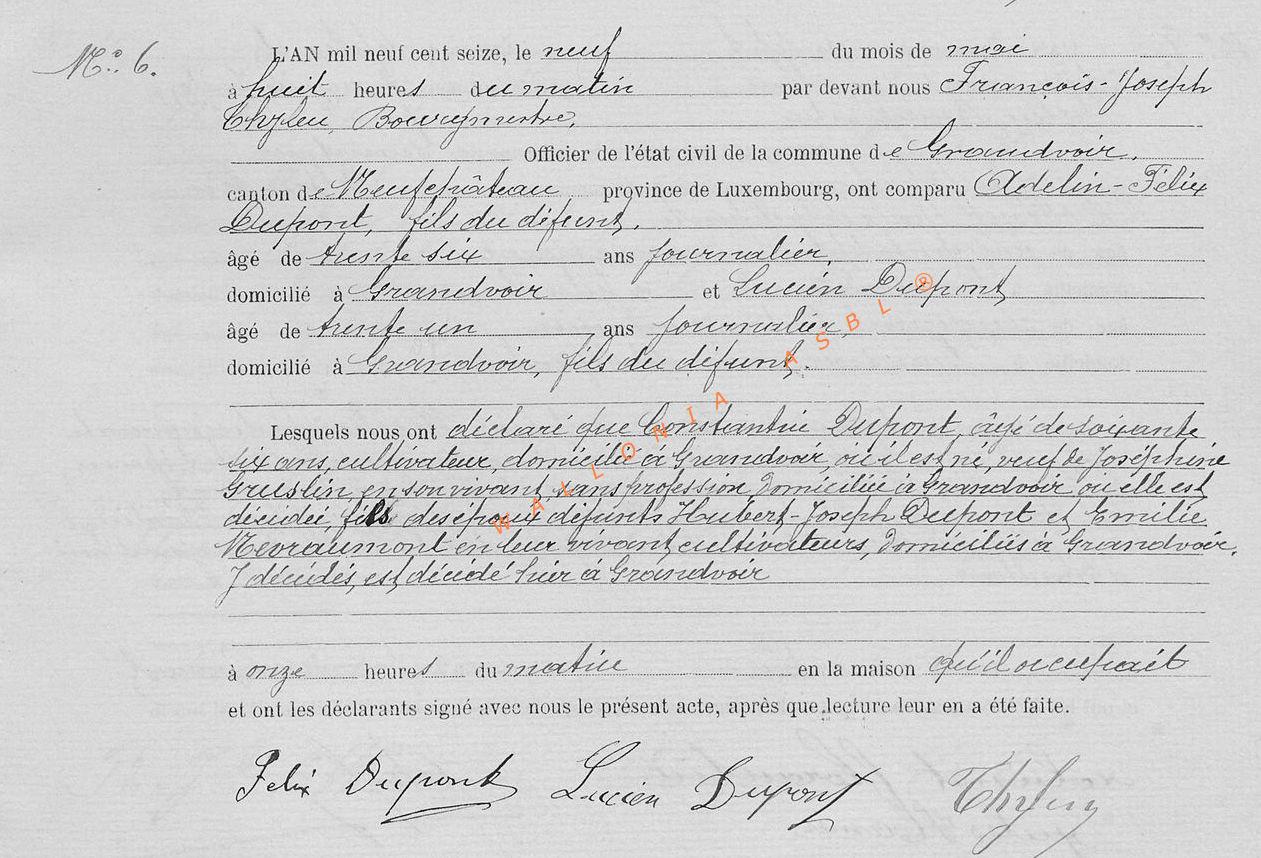 No. 6.
L'AN mil neuf cent seize, le neuf du mois de mai
à huit heures du matin par devant nous François-Joseph
Bourgmestre,
Officier de l'état civil de la commune de Grandvoir,
canton de Neufchâteau province de Luxembourg, ont comparu Adelin-Félix
Dupont, fils du défunt,
âgé de trente six ans journalier,
domicilié à Grandvoir et Lucien Dupont
âgé de trente un ans journalier,
domicilié à Grandvoir, fils du défunt.
Lesquels nous ont déclaré que Constantin Dupont, âgé de soixante
six ans, cultivateur, domicilié à Grandvoir, où il est né, veuf de Joséphine
Gruslin, en son vivant, sans profession, domiciliée à Grandvoir où elle est
décédée, fils des époux défunts Hubert-Joseph Dupont et Emilie
Nevraumont en leur vivant cultivateurs, domiciliés à Grandvoir,
y décédés, est décédé hier à Grandvoir
à onze heures du matin en la maison qu'il occupait
et ont les déclarants signé avec nous le présent acte, après que lecture leur en a été faite.
Felix Dupont Lucien Dupont
WALLONIA ASBL ®